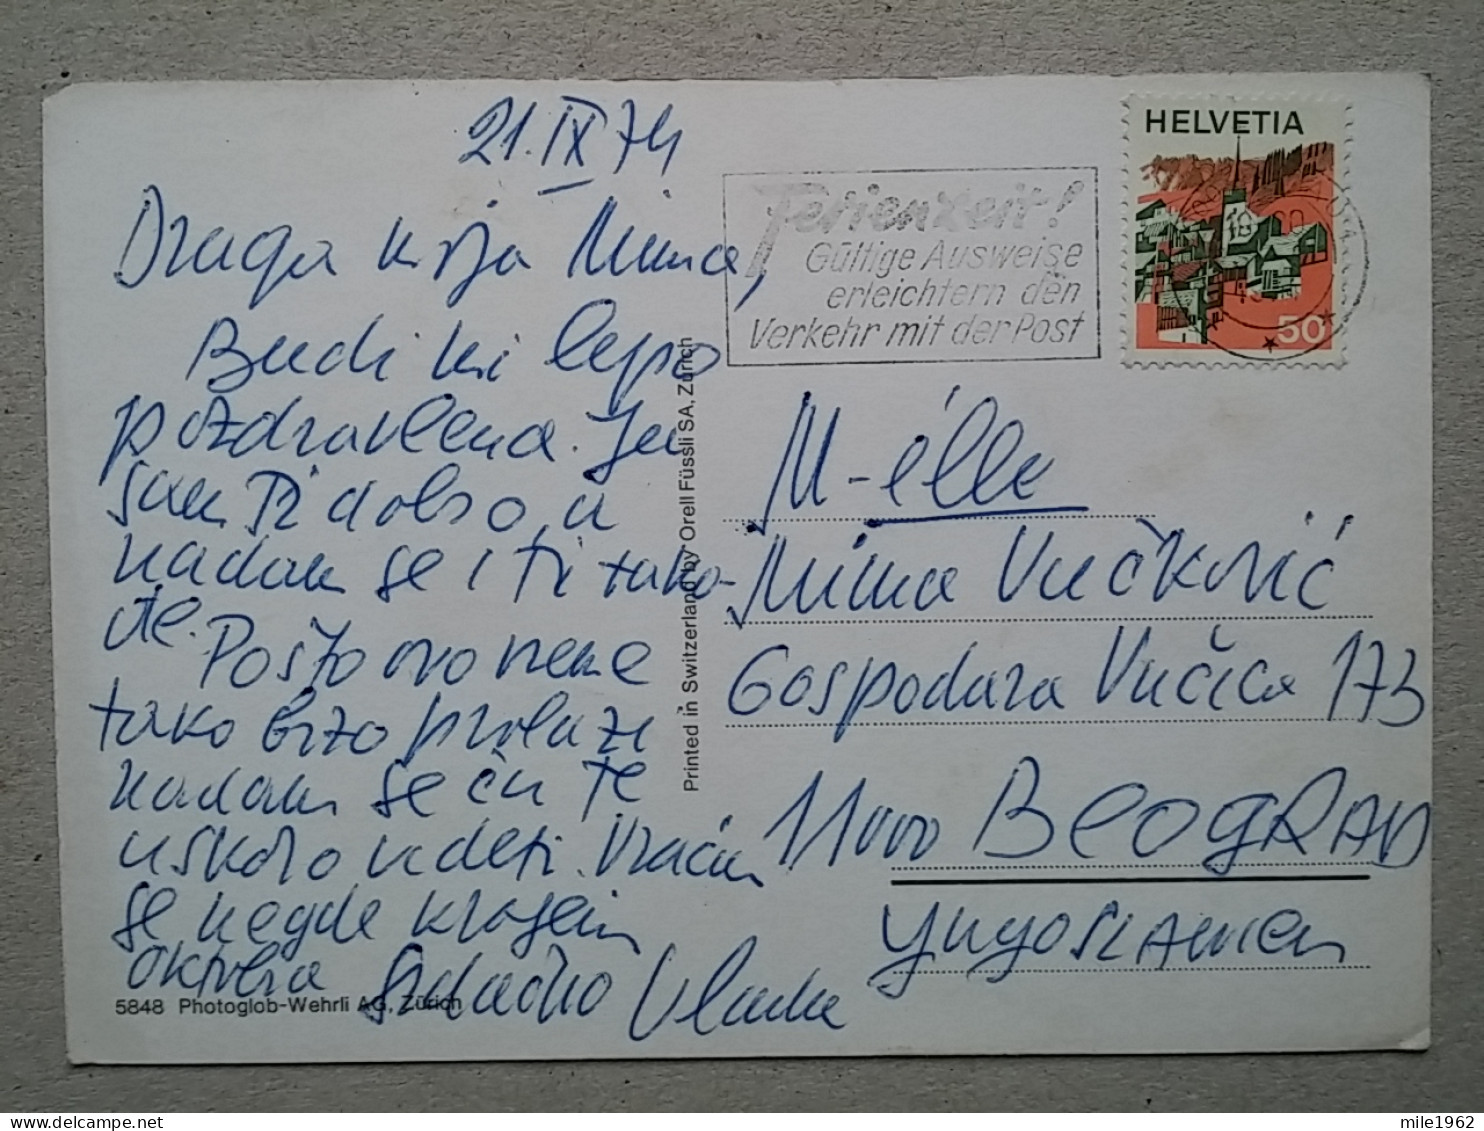 21. IX 74
Draga moja Mima,
Budi mi lepo
pozdravljena. Ja
sam Ti dobro, a
nadam se i ti tako-
đe. Pošto ovo vreme
tako brzo prolazi
nadam se ću te
uskoro videti. Vraćam
se negde krajem
oktobra Srdačno Vlada
HELVETIA
50
Ferienzeit!
Gültige Ausweise
erleichtern den
Verkehr mit der Post
M-élle
Mima Vučković
Gospodara Vučića 173
11000 BEOGRAD
Yugoslawien
Printed in Switzerland by Orell Füssli SA, Zürich
5848 Photoglob-Wehrli AG, Zürich
mile1962